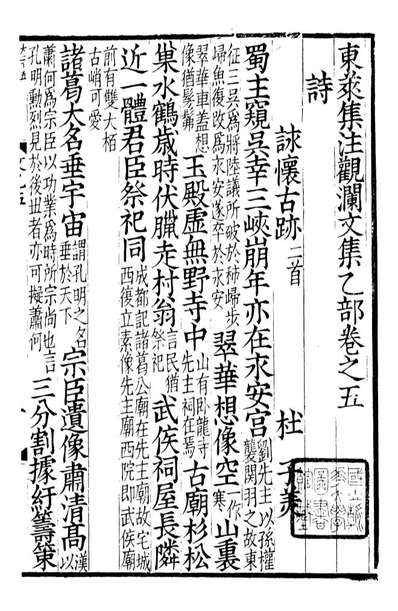 東萊集注觀瀾文集乙部卷之五
詩
詠懷古跡二首 杜子美
蜀主窺吳幸三峽崩年亦在永安宮劉先主以孫權襲關羽之故東
征三吳爲將陸議所破於秭歸步歸魚復改爲永安遂卒於永安翠華想像空一作寒山裏
翠華車蓋想像猶髣髴玉殿虛無野寺中山有卧龍寺先主祠在焉古廟杉松
巢水鶴歲時伏臘走村翁言民猶祭祀武侯祠屋長隣
近一體君臣祭祀同成都記諸葛公廟在先主廟故宅城西復立素像先主廟西院即武侯廟
前有雙大栢古峭可愛
諸葛大名垂宇宙謂孔明之名垂於天下宗臣遺像肅清高漢以
蕭何爲宗臣以功業爲時所宗尚也言孔明勲烈見於後世者亦可擬蕭何三分割據紆籌策